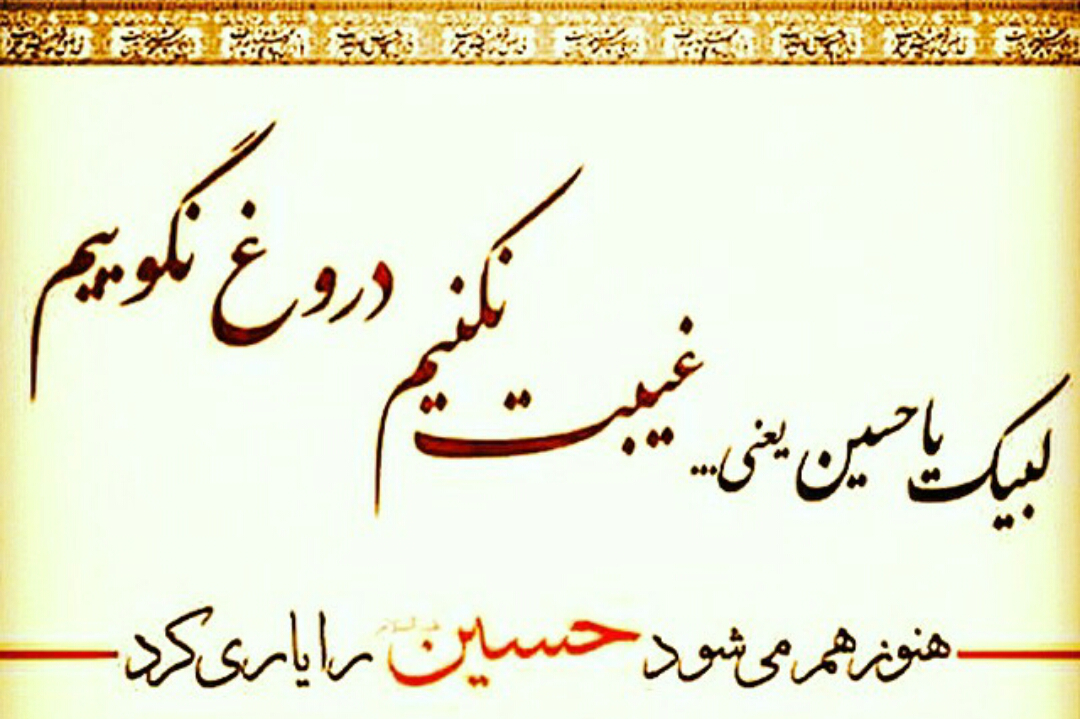 لبیک یا حسین یعنی... غیبت نکنیم دروغ نگوییم
هنوز هم می‌شود حسین علیه السلام را یاری کرد